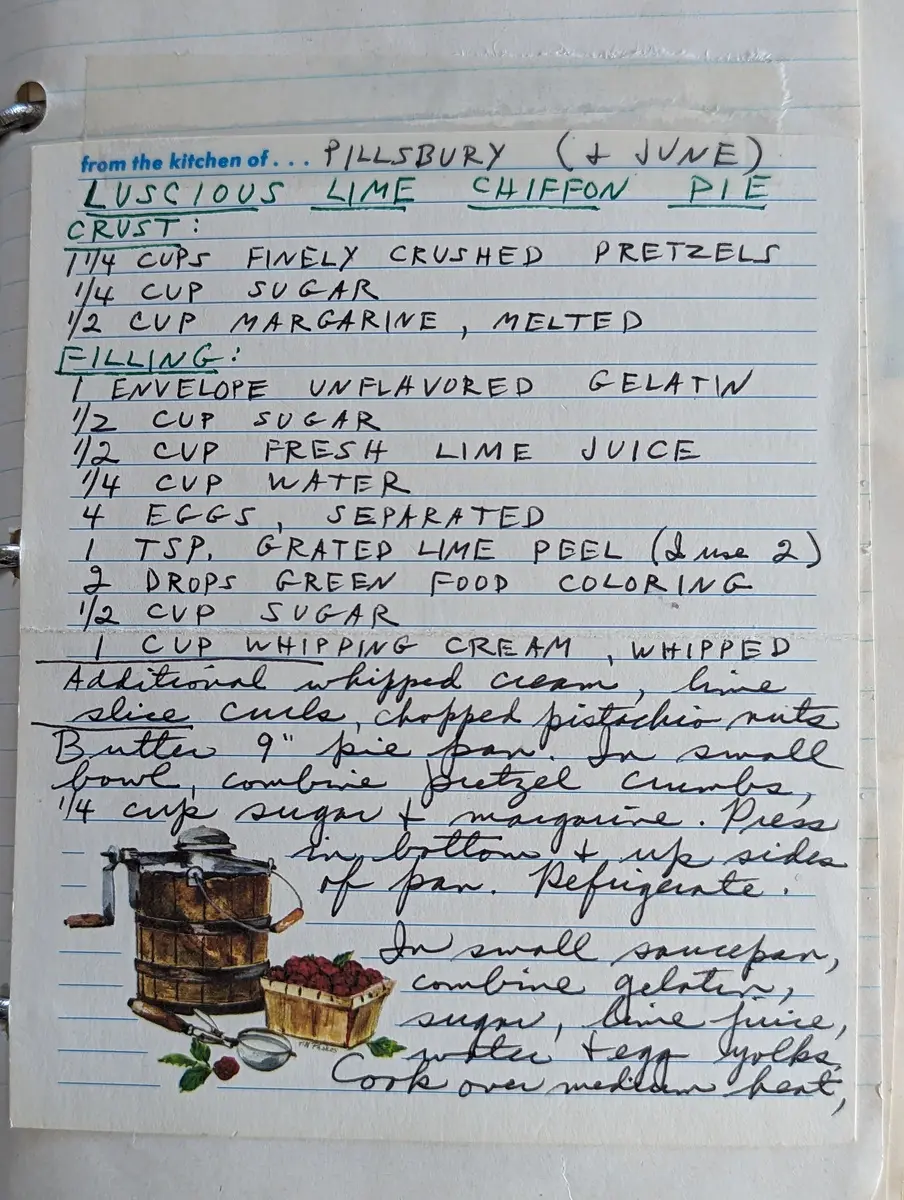 from the kitchen of . . . PILLSBURY (& JUNE)
LUSCIOUS LIME CHIFFON PIE
CRUST:
1 1/4 CUPS FINELY CRUSHED PRETZELS
1/4 CUP SUGAR
1/2 CUP MARGARINE, MELTED
FILLING:
1 ENVELOPE UNFLAVORED GELATIN
1/2 CUP SUGAR
1/2 CUP FRESH LIME JUICE
1/4 CUP WATER
4 EGGS, SEPARATED
1 TSP. GRATED LIME PEEL (I use 2)
2 DROPS GREEN FOOD COLORING
1/2 CUP SUGAR
1 CUP WHIPPING CREAM, WHIPPED
Additional whipped cream, lime
slice curls, chopped pistachio nuts
Butter 9" pie pan. In small
bowl, combine pretzel crumbs,
1/4 cup sugar & margarine. Press
in bottom & up sides
of pan. Refrigerate.
In small saucepan,
combine gelatin,
sugar, lime juice,
water & egg yolks.
Cook over medium heat,